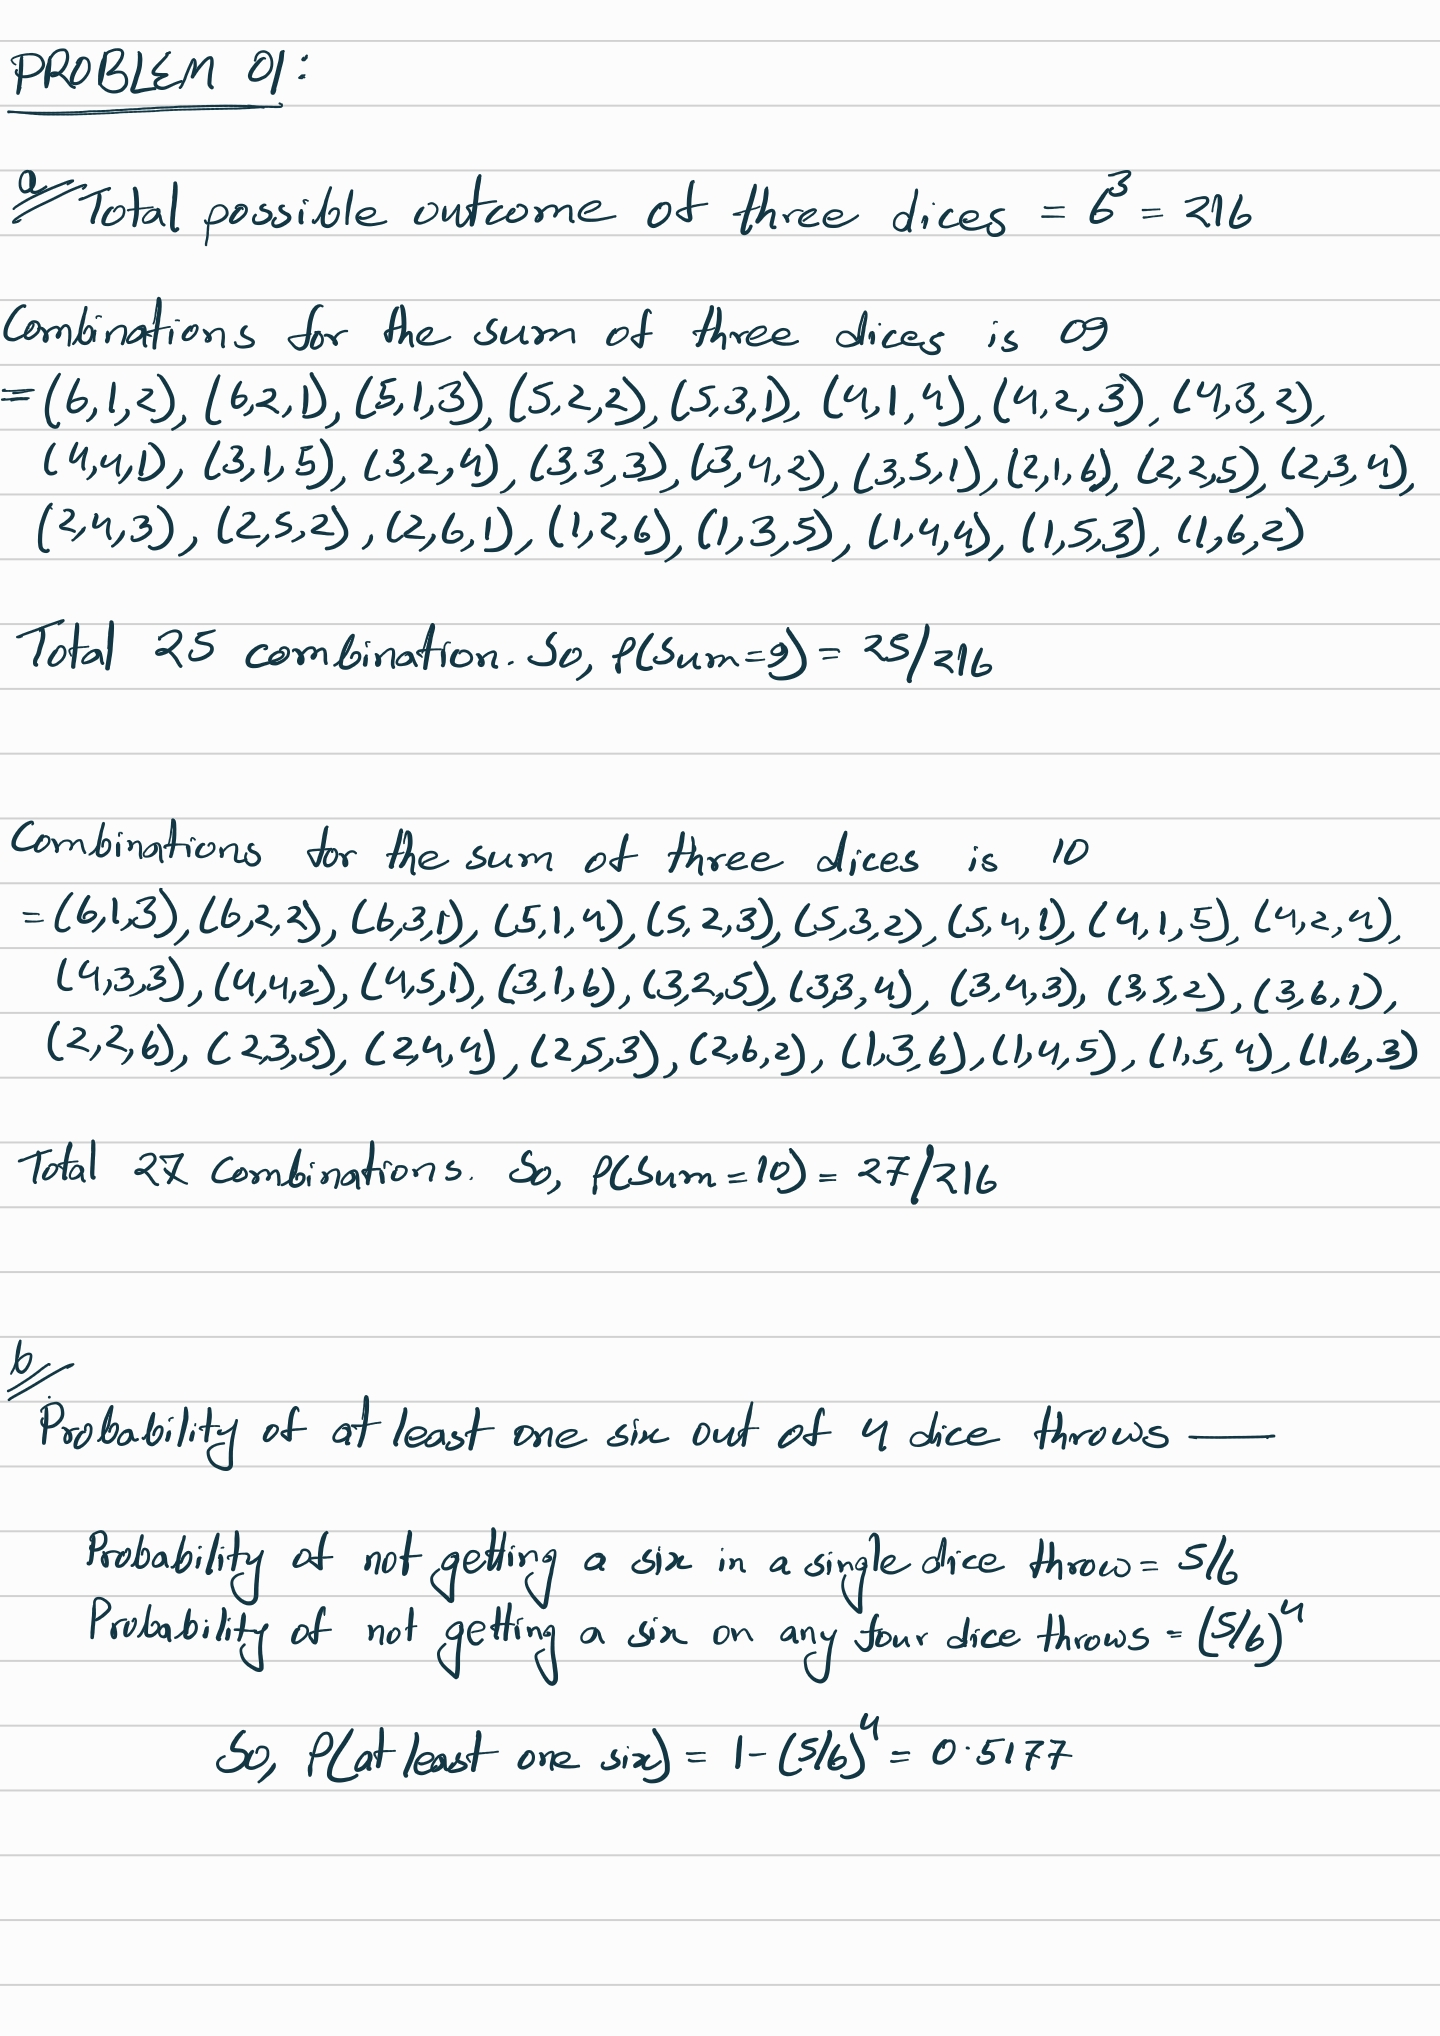 PROBLEM 01:
a Total possible outcome of three dices = 6³ = 216
Combinations for the sum of three dices is 09
= (6,1,2), (6,2,1), (5,1,3), (5,2,2), (5,3,1), (4,1,4), (4,2,3), (4,3,2),
(4,4,1), (3,1,5), (3,2,4), (3,3,3), (3,4,2), (3,5,1), (2,1,6), (2,2,5), (2,3,4),
(2,4,3), (2,5,2), (2,6,1), (1,2,6), (1,3,5), (1,4,4), (1,5,3), (1,6,2)
Total 25 combination. So, P(Sum=9) = 25/216
Combinations for the sum of three dices is 10
= (6,1,3), (6,2,2), (6,3,1), (5,1,4), (5,2,3), (5,3,2), (5,4,1), (4,1,5), (4,2,4),
(4,3,3), (4,4,2), (4,5,1), (3,1,6), (3,2,5), (3,3,4), (3,4,3), (3,5,2), (3,6,1),
(2,2,6), (2,3,5), (2,4,4), (2,5,3), (2,6,2), (1,3,6), (1,4,5), (1,5,4), (1,6,3)
Total 27 Combinations. So, P(Sum=10) = 27/216
b
Probability of at least one six out of 4 dice throws —
Probability of not getting a six in a single dice throw = 5/6
Probability of not getting a six on any four dice throws = (5/6)⁴
So, P(at least one six) = 1-(5/6)⁴ = 0.5177